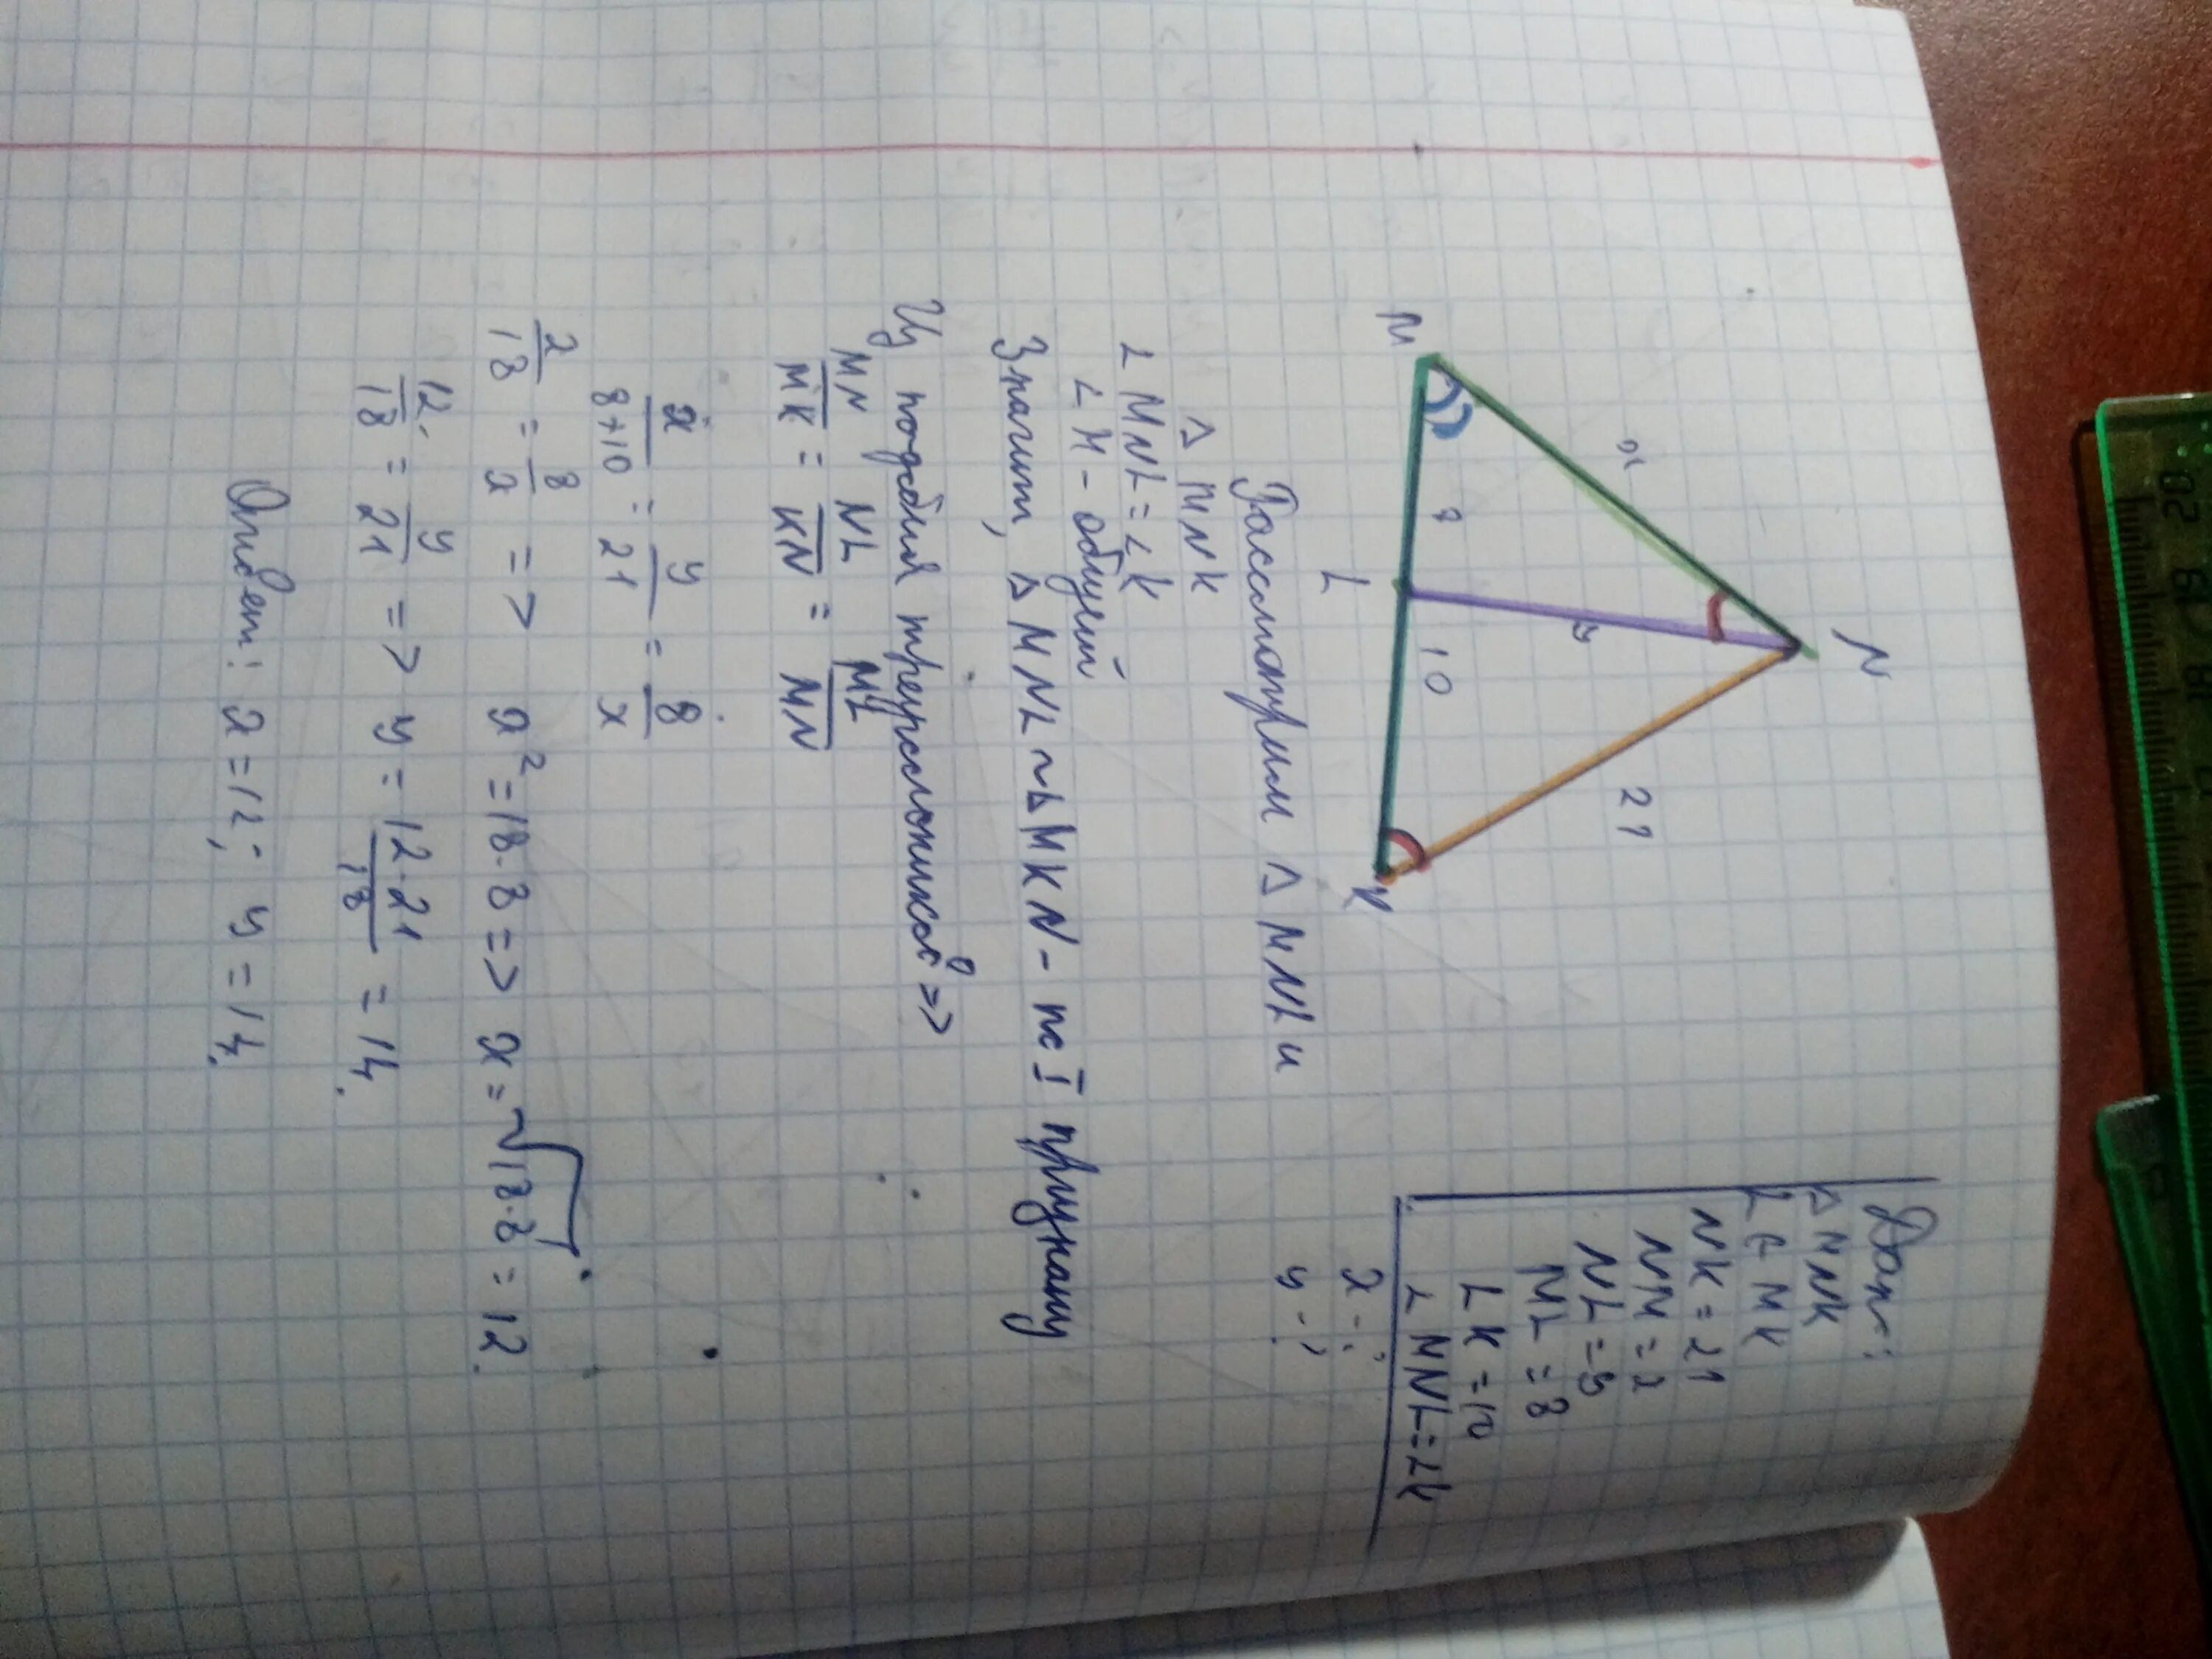 N
x
21
y
8
10
M
L
K
Дано:
△ MNK
L ∈ MK
NK = 21
NM = x
NL = y
ML = 8
LK = 10
∠ MNL = ∠K
x - ?
y - ?
Рассмотрим △ MNL и
△ MNK
∠ MNL = ∠K
∠ M - общий
Значит, △ MNL ~ △ MKN - по I признаку
Из подобия треугольников =>
MN/MK = NL/KN = ML/MN
x/8+10 = y/21 = 8/x
x/18 = 8/x => x² = 18·8 => x = √18·8 = 12.
12/18 = y/21 => y = 12·21/18 = 14.
Ответ: x = 12; y = 14.
20 19 18